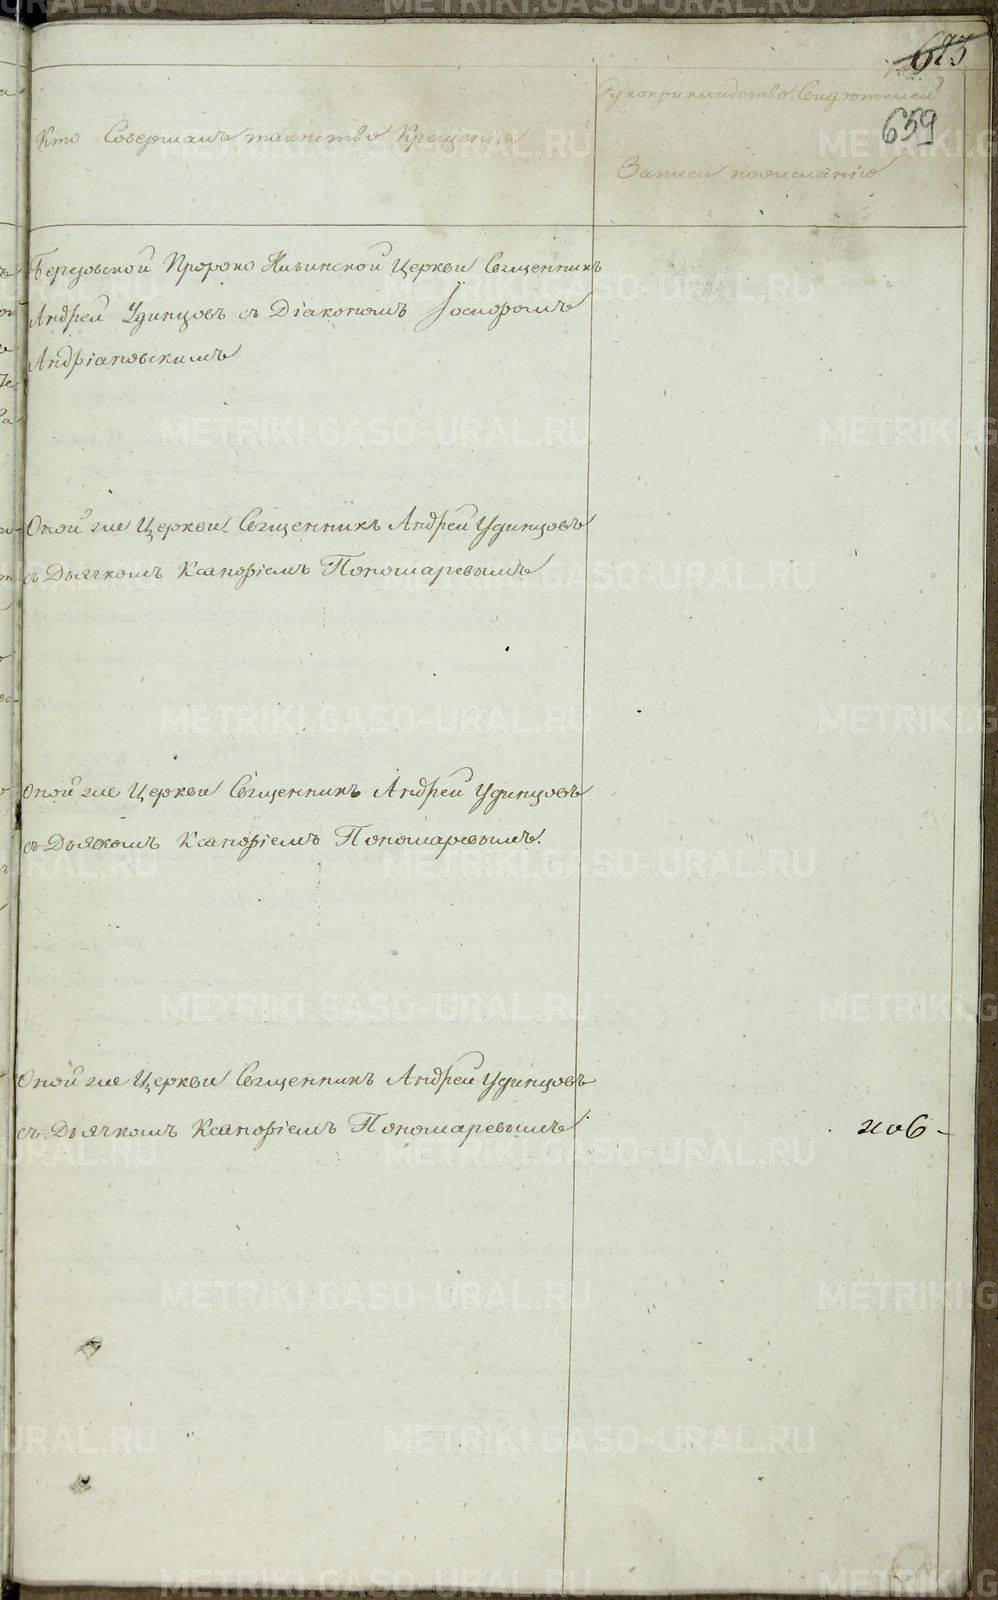 683
659
Кто Совершалъ таинство Крещенія
Рукоприкладство Свидѣтелей
Записи пожеланію
Березовской Пророко Ильинской Церкви Священникъ
Андрей Удинцовъ съ Діакономъ
Андріановскимъ
Оной же Церкви Священникъ Андрей Удинцовъ
съ Дьячкомъ Ксанофіемъ Пономаревымъ
Оной же Церкви Священникъ Андрей Удинцовъ
съ Дьячкомъ Ксанофіемъ Пономаревымъ.
Оной же Церкви Священникъ Андрей Удинцовъ
съ Дьячкомъ Ксанофіемъ Пономаревымъ
METRIKI.GASO-URAL.RU